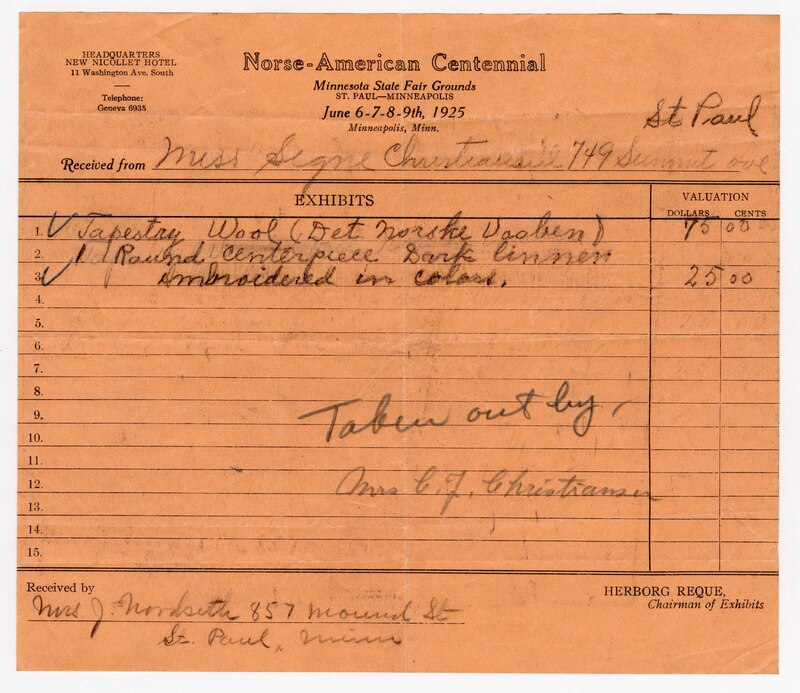 HEADQUARTERS
NEW NICOLLET HOTEL
11 Washington Ave. South
Telephone:
Geneva 6935
Norse-American Centennial
Minnesota State Fair Grounds
ST. PAUL—MINNEAPOLIS
June 6-7-8-9th, 1925
Minneapolis, Minn.
St Paul
Received from Miss Signe Christiansen 749 Summit ave
EXHIBITS VALUATION
DOLLARS CENTS
1. ✓ Tapestry Wool (Det Norske Vaaben) 75 00
2. 1 Round Centerpiece Dark linnen
3. ✓ Embroidered in colors. 25 00
4.
5.
6.
7.
8.
9. Taken out by -
10.
11.
12. Mrs C. J. Christiansen
13.
14.
15.
Received by
Mrs J. Nordseth 857 Mound St
St. Paul, Minn
HERBORG REQUE,
Chairman of Exhibits